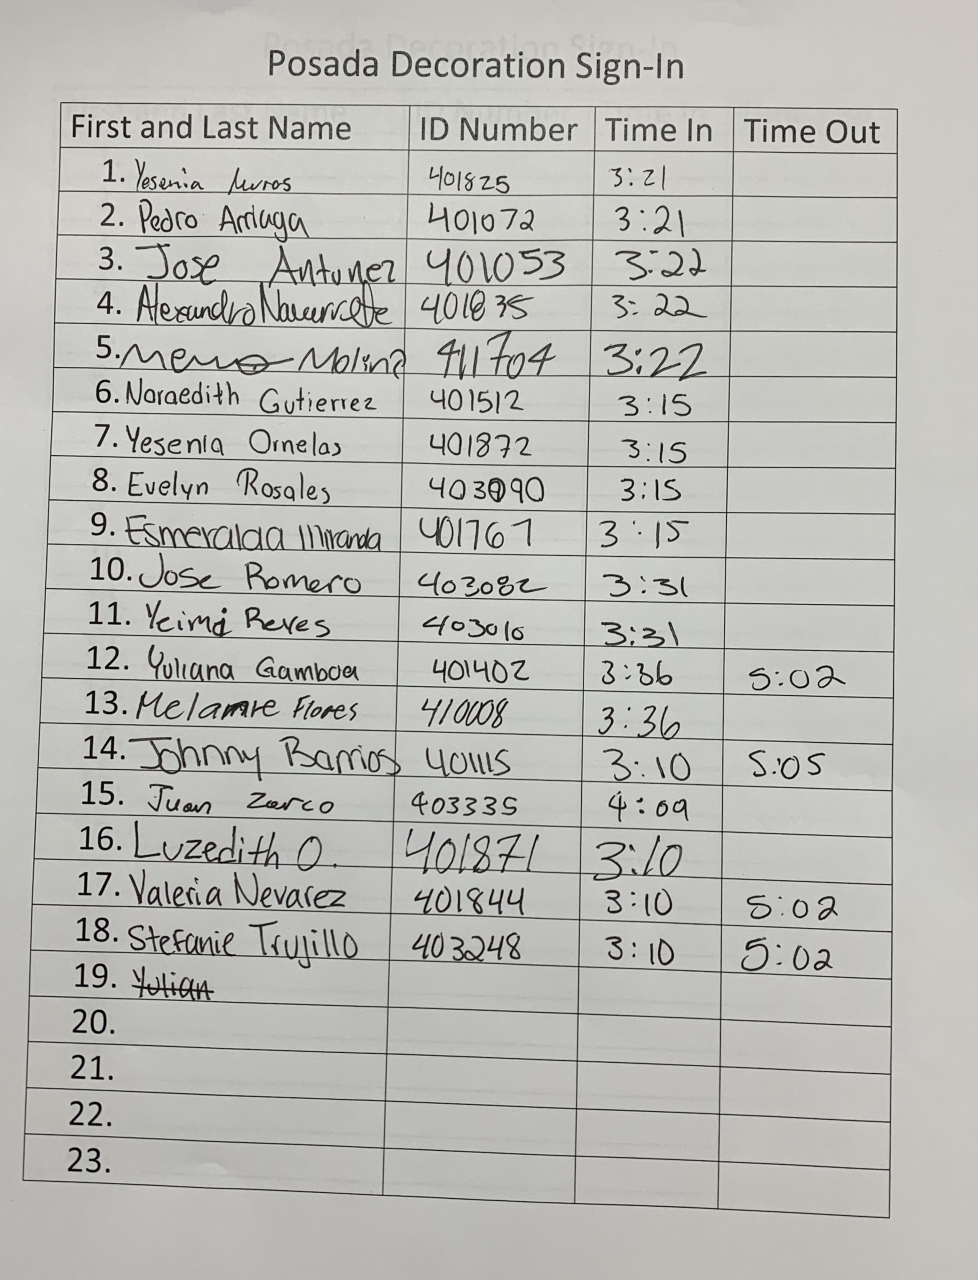 Posada Decoration Sign-In
First and Last Name ID Number Time In Time Out
1. Yesenia 401825 3:21
2. Pedro Arriaga 401072 3:21
3. Jose Antunez 401053 3:22
4. Alexandro Navarrete 401835 3:22
5. Memo Molina 411704 3:22
6. Noraedith Gutierrez 401512 3:15
7. Yesenia Ornelas 401872 3:15
8. Evelyn Rosales 403090 3:15
9. Esmeralda Miranda 401767 3:15
10. Jose Romero 403082 3:31
11. Yeimi Reyes 403010 3:31
12. Yuliana Gamboa 401402 3:36 5:02
13. Melannie Flores 410008 3:36
14. Johnny Barrios 401115 3:10 5:05
15. Juan Zarco 403335 4:09
16. Luzedith O. 401871 3:10
17. Valeria Nevarez 401844 3:10 5:02
18. Stefanie Trujillo 403248 3:10 5:02
19. Yulian
20.
21.
22.
23.